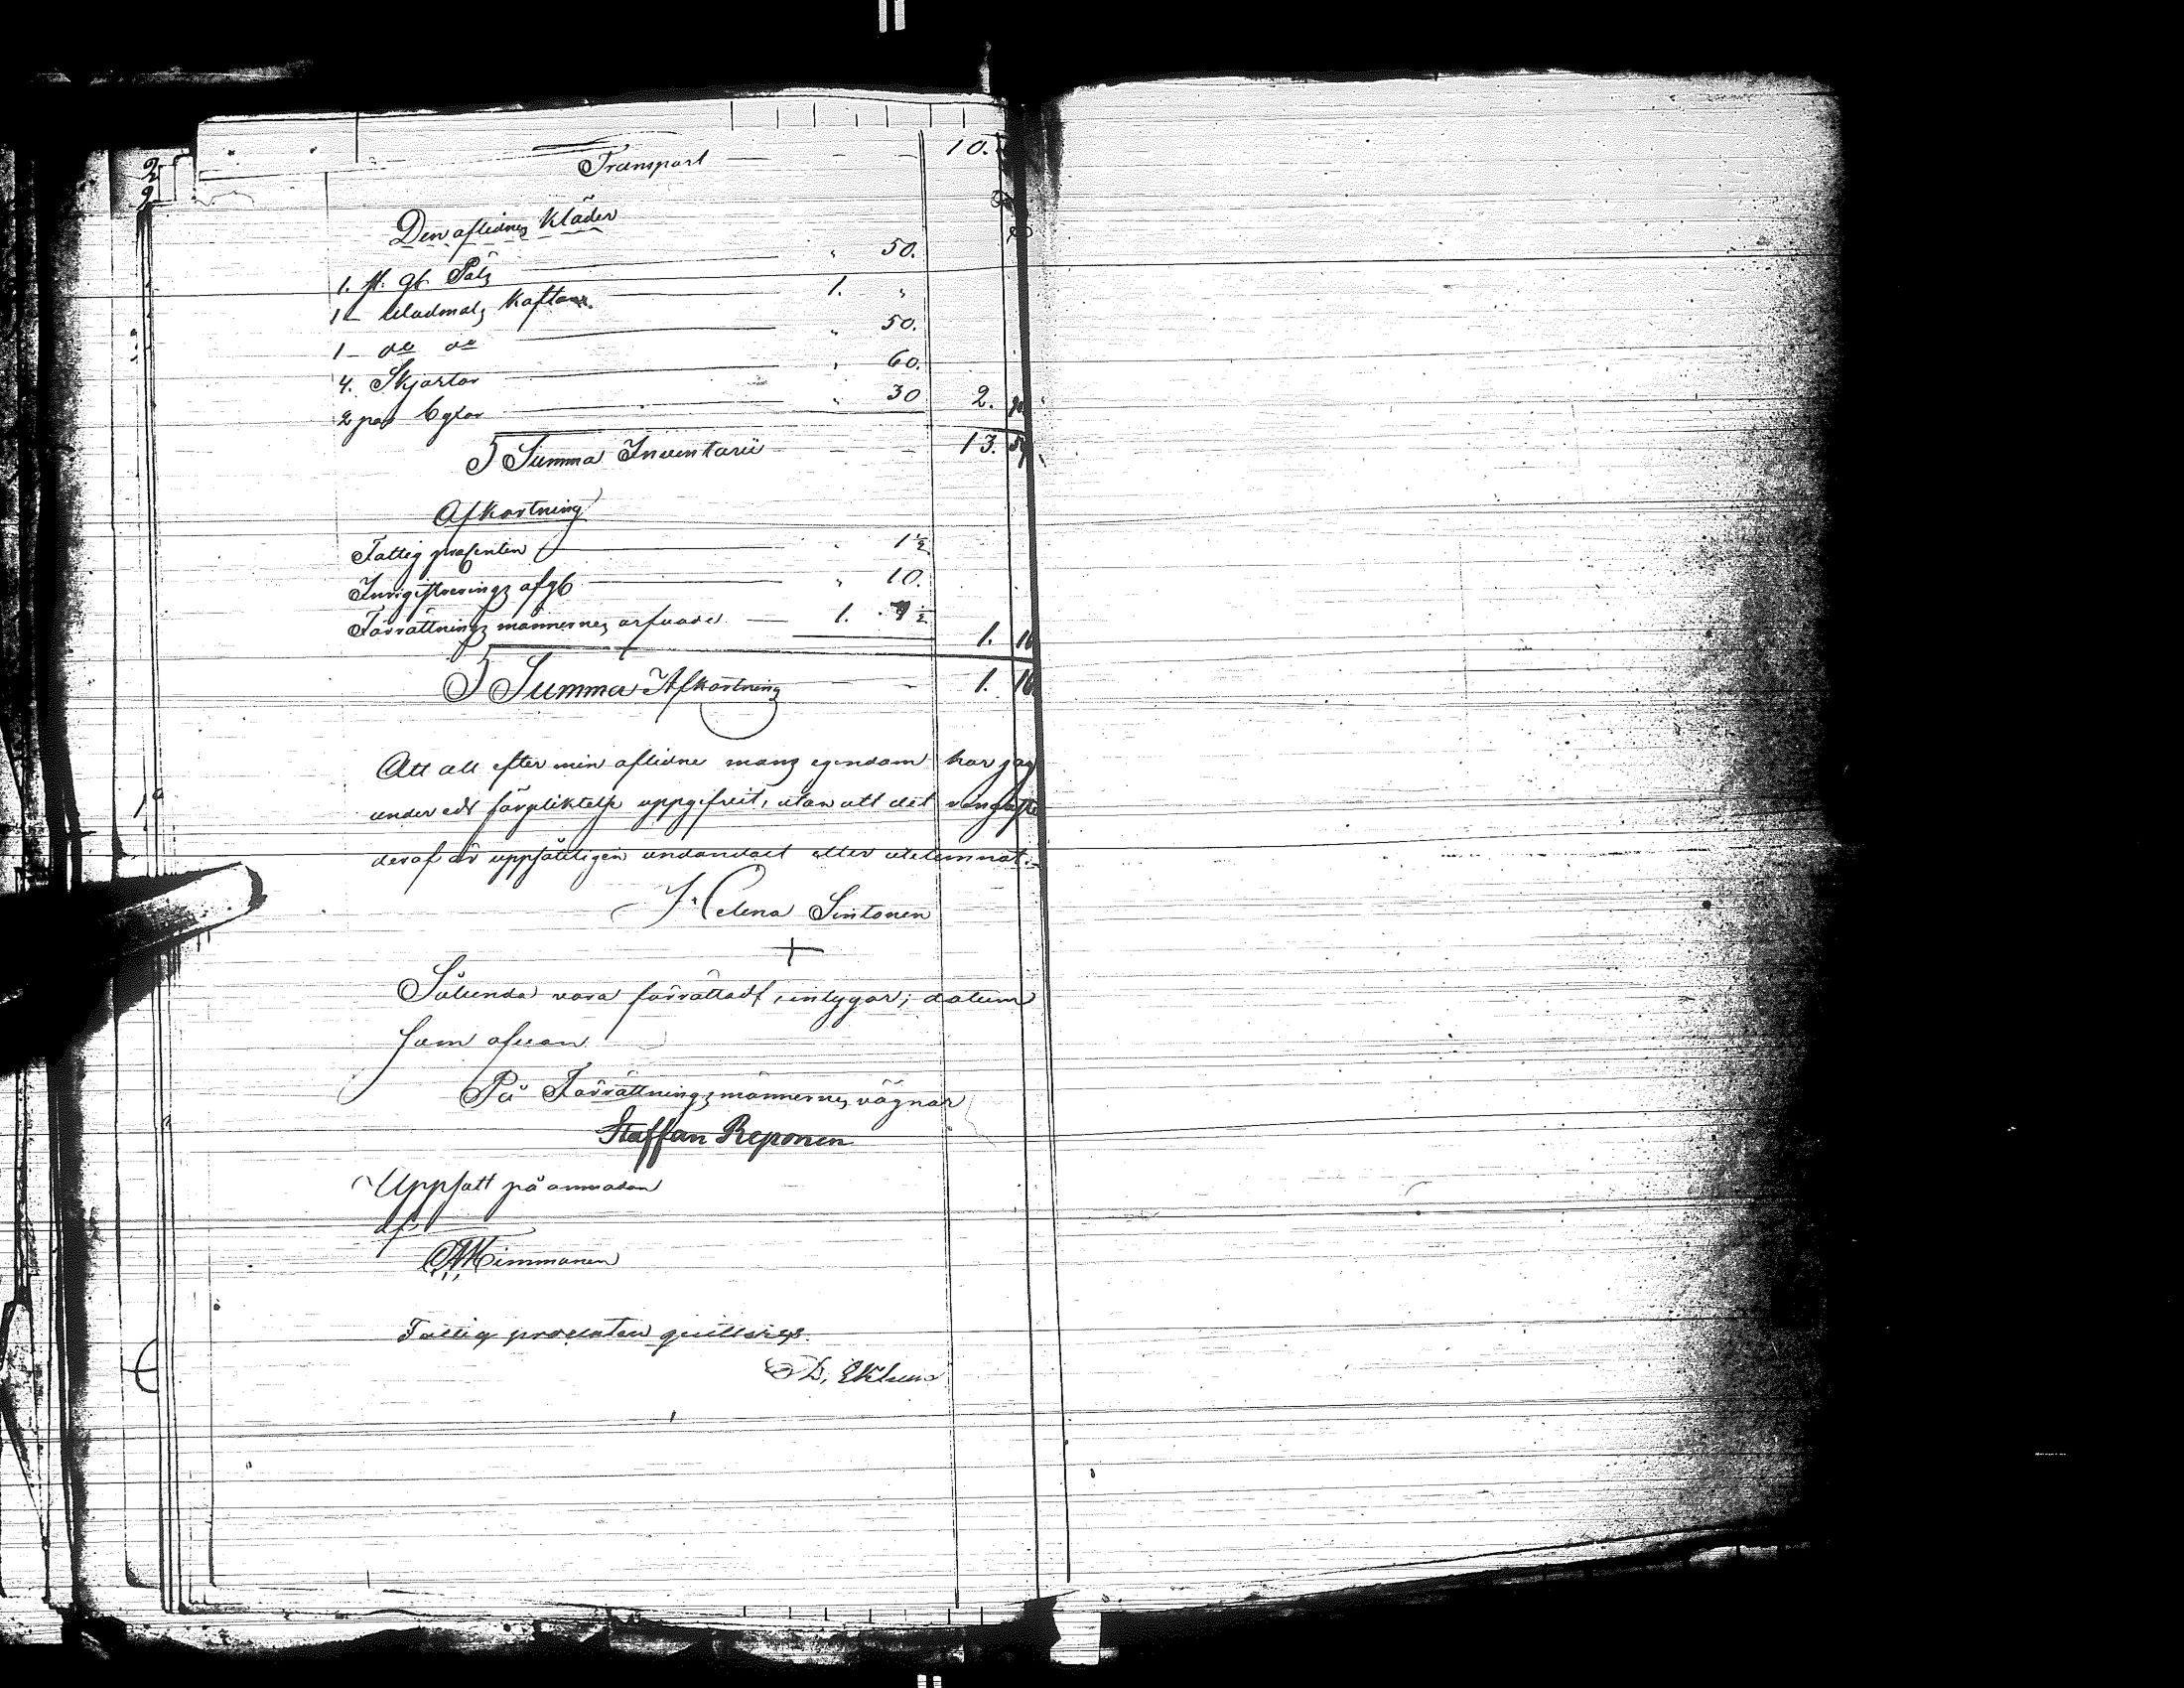 Transport — 10.
Den aflidnes Kläder
1. st. gl. Päls — " 50.
1 — Wadmals Kaftan — 1. "
1 — do do — " 50.
4. Skjortor — " 60.
2 par Byxor — " 30 2. 90
Summa Inventarii — 13.
Afkortning
Fattig prosenten — " 1½
Inregistrerings afgb — " 10.
Förrättnings männernes arfvode — 1. 4½ 1. 16
Summa Afkortning — 1. 16
Att all efter min aflidne mans egendom har jag
under eds förpliktelse uppgifvit, utan att det ringaste
deraf är uppsåteligen undandolt eller utelemnat.
Helena Sintonen
+
Sålunda vara förrättadt, intygar; datum
som ofvan
På Förrättningsmännernes vägnar
Staffan Reponen
Uppsatt på anmodan
af
Kimmanen
Fattig procenten quitteras.
Eklund